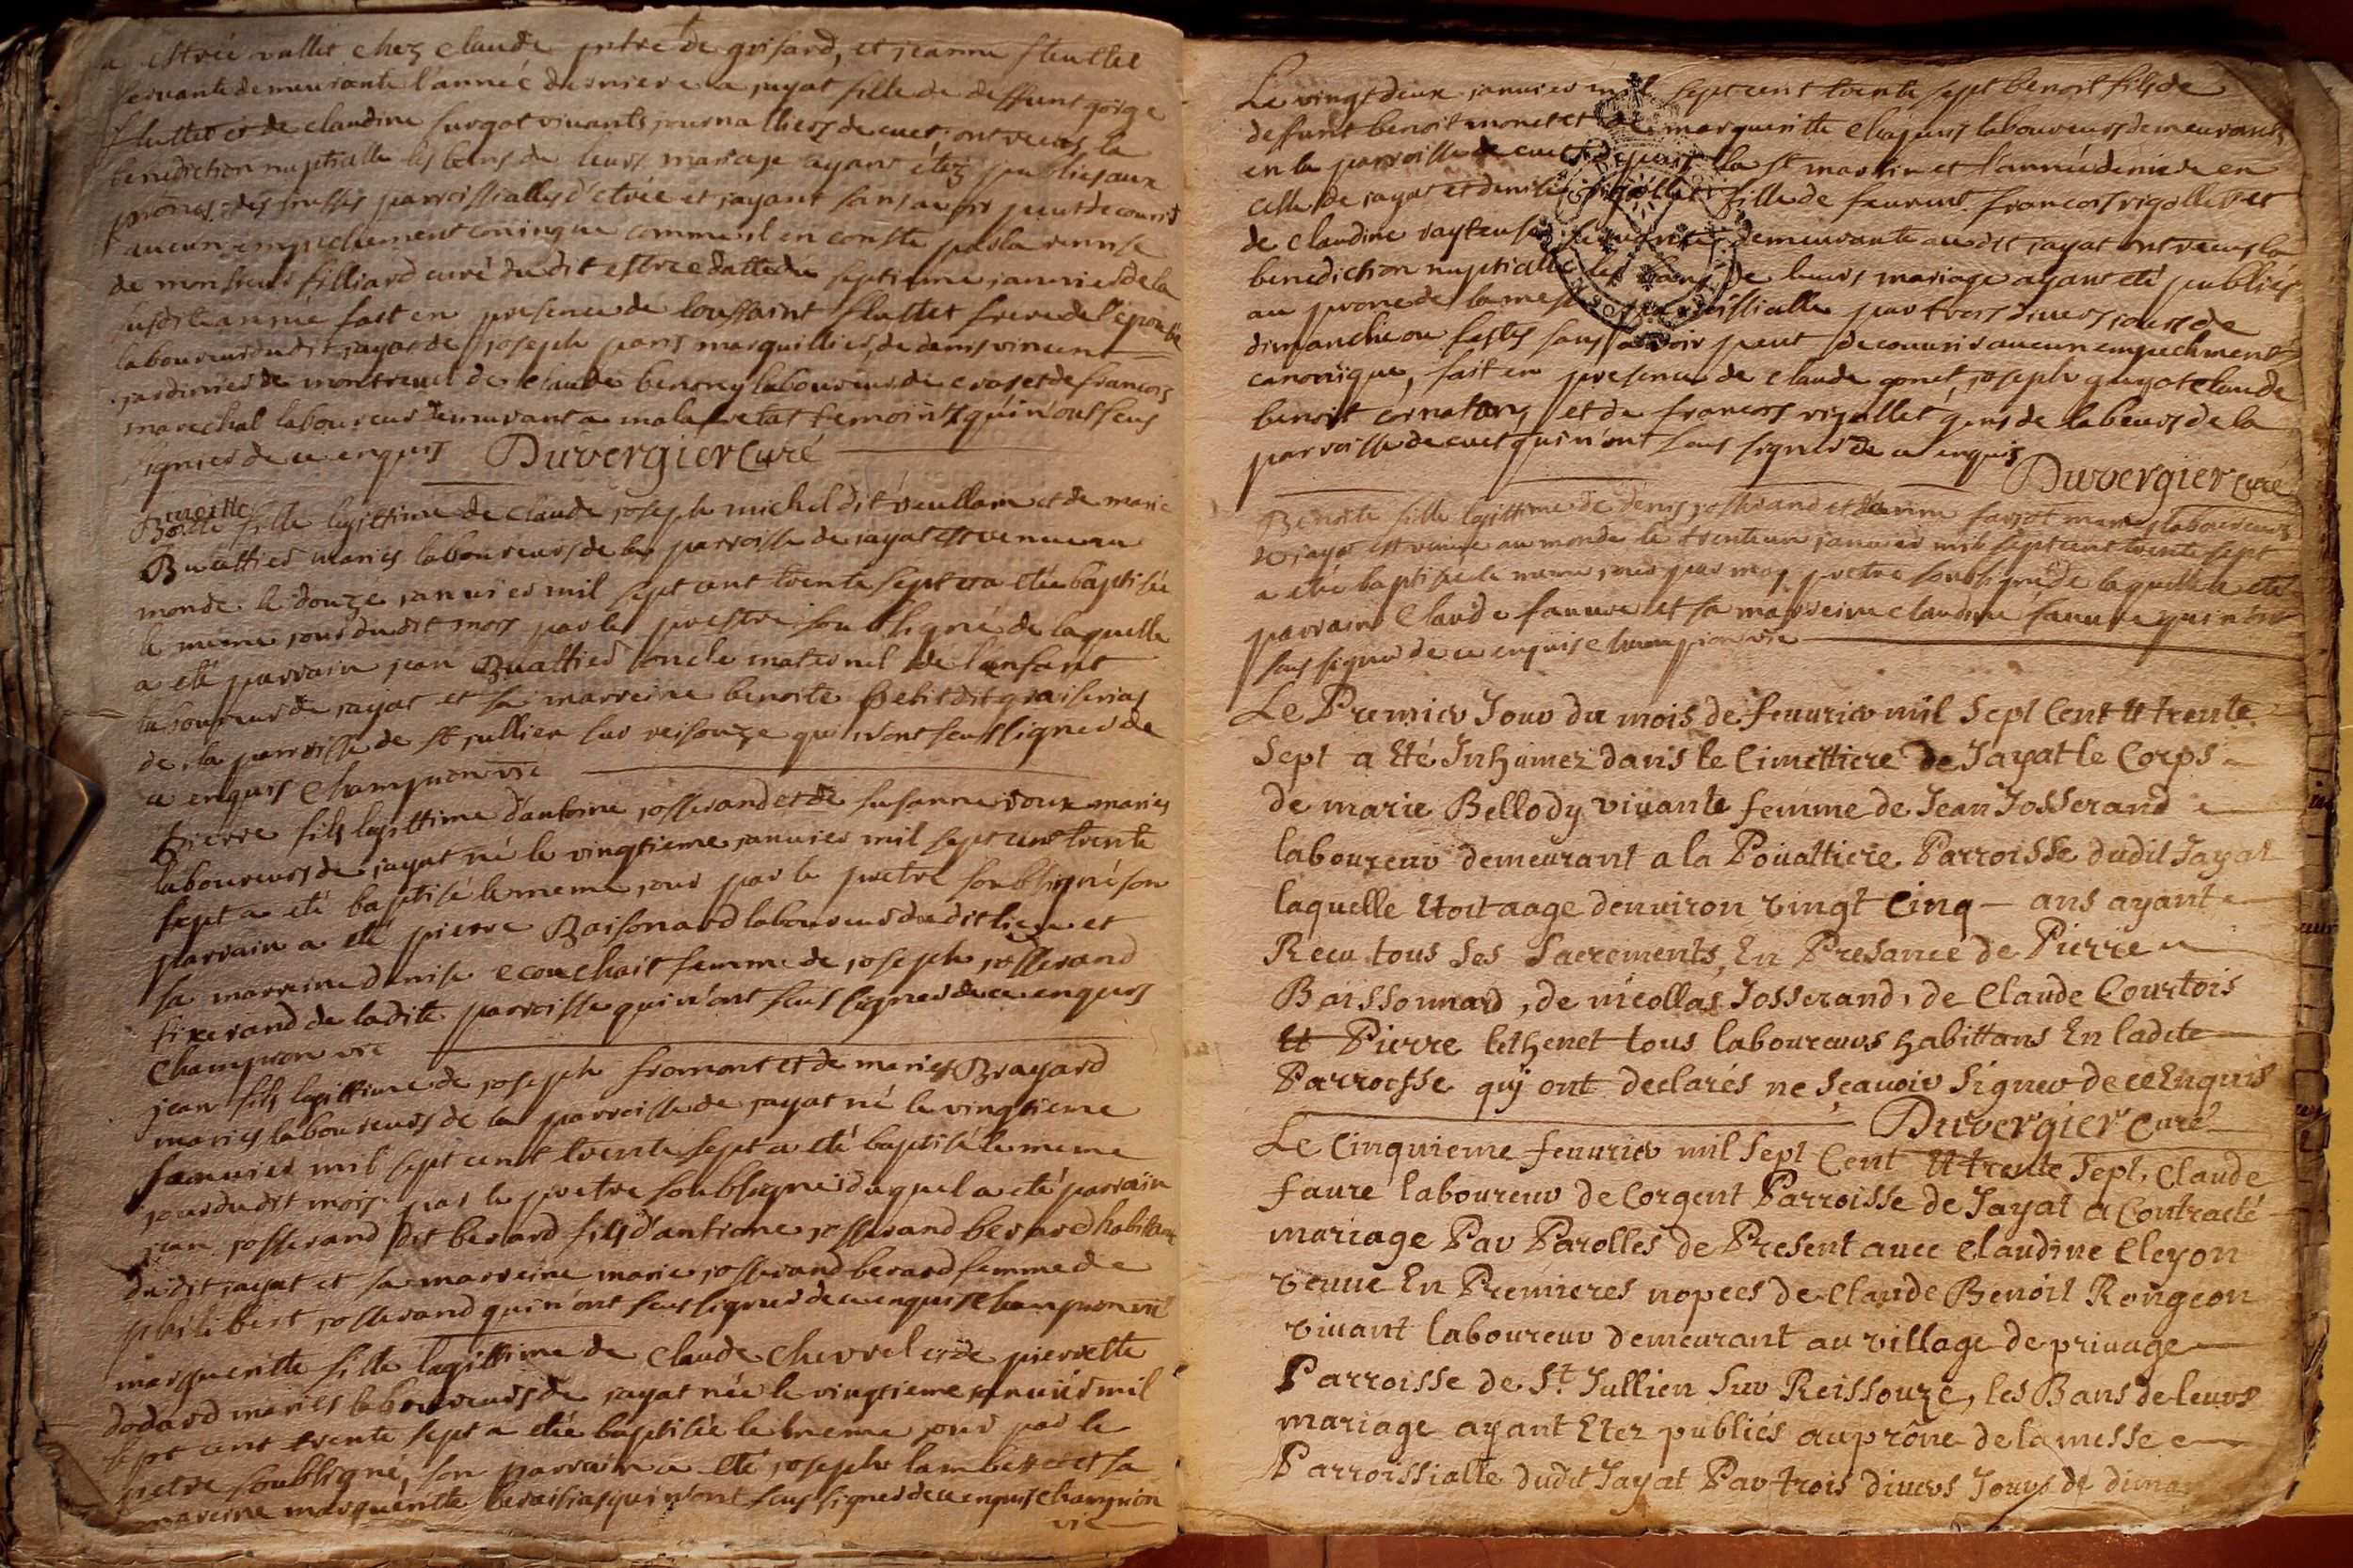 estrée vallet chez claude de grifard, et jeanne fluttet
servante demeurante l'année derniere a jayat fille de deffunt
fluttet et de claudine surgot vivants journalliers de cuet, ont receus la
benediction nuptialle les bans de leurs mariage ayant étéz publies aux
prones des messes parroissialles d'etrée et jayant sans avoir peut decouvrir
aucun empechement comme il en conste par la remise
de monsieur filliard curé dudit estree datte du septieme janvier de la
susdite année fait en presence de toussaint fluttet frere de l'épouse
laboureur dudit jayat de joseph paris marguillier, de denis vincent
jardinier de montreuil de claude benony laboureur de et de francois
marechal laboureur demeurant a temoints qui n'ont seus
signer de ce enquis Duvergier Curé
Benoitte
fille legittime de claude joseph michel dit et de marie
Buattier maries laboureurs de la parroisse de jayat est venue au
monde le douze janvier mil sept cent trente sept et a étée baptisée
le meme jour dudit mois par le prestre soubsigné de laquelle
a eté parrain jean Buattier oncle maternel de l'enfant
laboureur de jayat et sa marreine benoite petit dit
de la parroisse de st jullien sur reisouze qui n'ont seus signer de
ce enquis Champion vic
pierre fils legittime d'antoine josserand et de susanne roux maries
laboureurs de jayat né le vingtieme janvier mil sept cent trente
sept a eté baptisé le meme jour par le pretre soubsigné son
parrain a eté pierre Baisonard laboureur dudit lieu et
sa marreine denise ecouchair femme de joseph josserand
tixerand de ladite parroisse qui n'ont seus signer de ce enquis
Champion vic
jean fils legittime de joseph fromont et de marie Brayard
maries laboureurs de la parroisse de jayat né le vingtieme
janvier mil sept cent trente sept a eté baptisé le meme
jour dudit mois par le pretre soubsigné duquel a eté parrain
jean josserand dit berard fils d'antoine josserand berard habittant
dudit jayat et sa marreine marie josserand berard femme de
philibert josserand qui n'ont seus signer de ce enquis Champion vic
marguerite fille legittime de claude chevrel et de pierrette
dodard maries laboureurs de jayat née le vingtieme janvier mil
sept cent trente sept a etée baptisée le meme jour par le
pretre soubsigné, son parrain a eté joseph lambert et sa
mareine marguerite qui n'ont seus signer de ce enquis champion
vic
Le vingt deux janvier mil sept cent trente sept benoit fils de
deffunt benoit monet et de marguerite laboureurs demeurants
en la parroisse de cuet depuis la st martin et l'année derniere en
celle de jayat et denise rigollet fille de feu francois rigollet et
de claudine servante demeurante audit jayat ont receus la
benediction nuptialle les bans de leurs mariage ayant eté publies
au prone de la messe parroissialle par trois divers jours de
dimanche ou festes sans avoir peut decouvrir aucun empechment
canonique, fait en presence de claude gonet, joseph guyot claude
benoit cornaton, et de francois rigollet gens de labeurs de la
parroisse de cuet qui n'ont seus signer de ce enquis
Duvergier curé
Benoite fille legittime de denis josserand et de surjot maries laboureurs
de jayat est venue au monde le trente un janvier mil sept cent trente sept
a étée baptisée le meme jour par moy pretre soubsigné de laquelle a eté
parrain Claude fauure et sa marreine claudine fauure qui n'ont
seus signer de ce enquis champion vic
Le Premier Jour du mois de feuurier mil Sept Cent Et trente
Sept a Eté Inhumez dans le Cimettiere de Jayat le Corps
de marie Bellody viuante femme de Jean Josserand
laboureur demeurant a la Pouattiere Parroisse dudit Jayat
laquelle Etoit aage denuiron vingt Cinq — ans ayant
Recu tous Ses Sacrements, En Presance de Pierre
Baissonnard, de nicollas Josserand, de Claude Courtois
Et Pierre lethenet tous laboureurs habittans En ladite
Parroisse quÿ ont declarés ne Sçauoir Signer de ce Enquis
Duvergier Curé
Le Cinquieme feuurier mil Sept Cent Et trente Sept, Claude
faure laboureur de Corgent Parroisse de Jayat a Contracté
mariage Par Parolles de Present auec Claudine Cleyon
veuue En Premieres nopces de Claude Benoit Rongeon
viuant laboureur demeurant au village de priuage
Parroisse de St Jullien Sur Reissouze, les Bans de leurs
mariage ayant Etez publiés au prône de la messe
Parroissialle dudit Jayat Par trois diuers Jours de